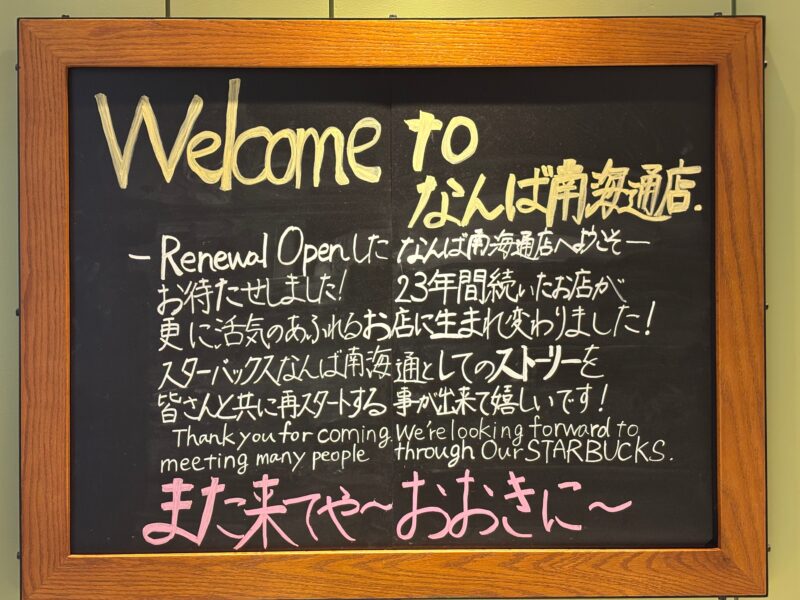 Welcome to
なんば南海通店.
-Renewal Openした なんば南海通店へようこそ-
お待たせしました! 23年間続いたお店が
更に活気のあふれるお店に生まれ変わりました!
スターバックスなんば南海通としてのストーリーを
皆さんと共に再スタートする事が出来て嬉しいです!
Thank you for coming. We're looking forward to
meeting many people through Our STARBUCKS.
また来てや～おおきに～